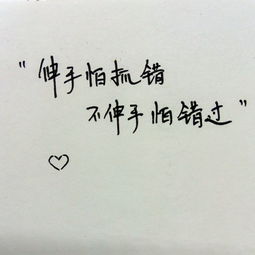 "伸手怕抓错
不伸手怕错过"